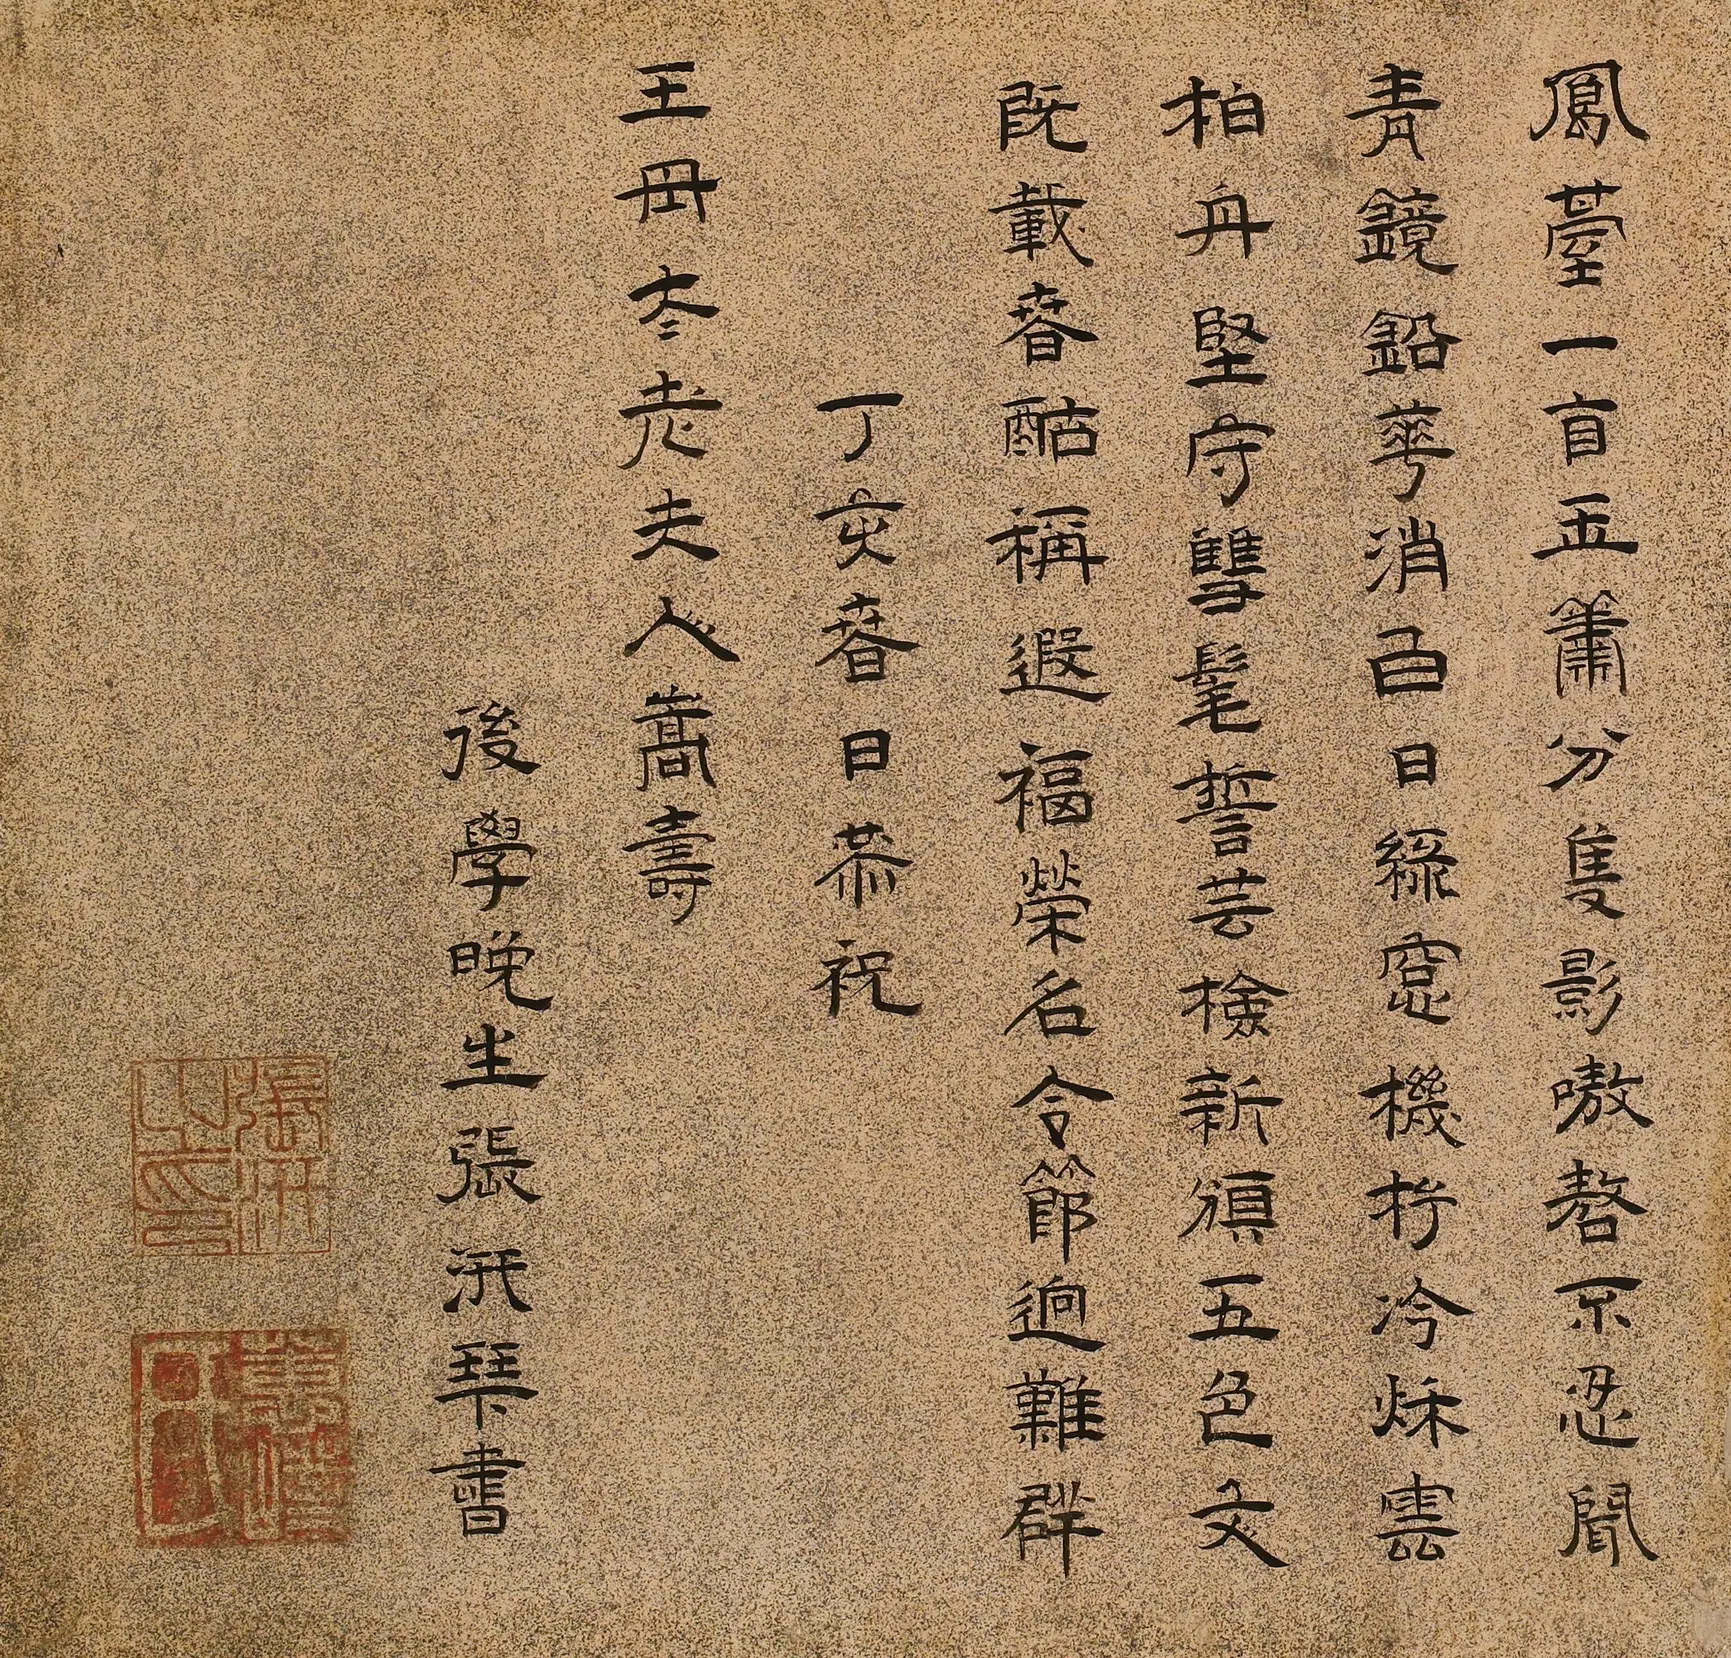 鳳臺一自玉簫分隻影嗷嗸不忍聞
青鏡鉛華消白日綠窓機杼冷秋雲
柏舟堅守雙髦誓芸檢新頒五色文
既載春酤稱遐福榮名令節迥難群
丁亥春日恭祝
王母夳老夫人嵩壽
後學晚生張汧琴書